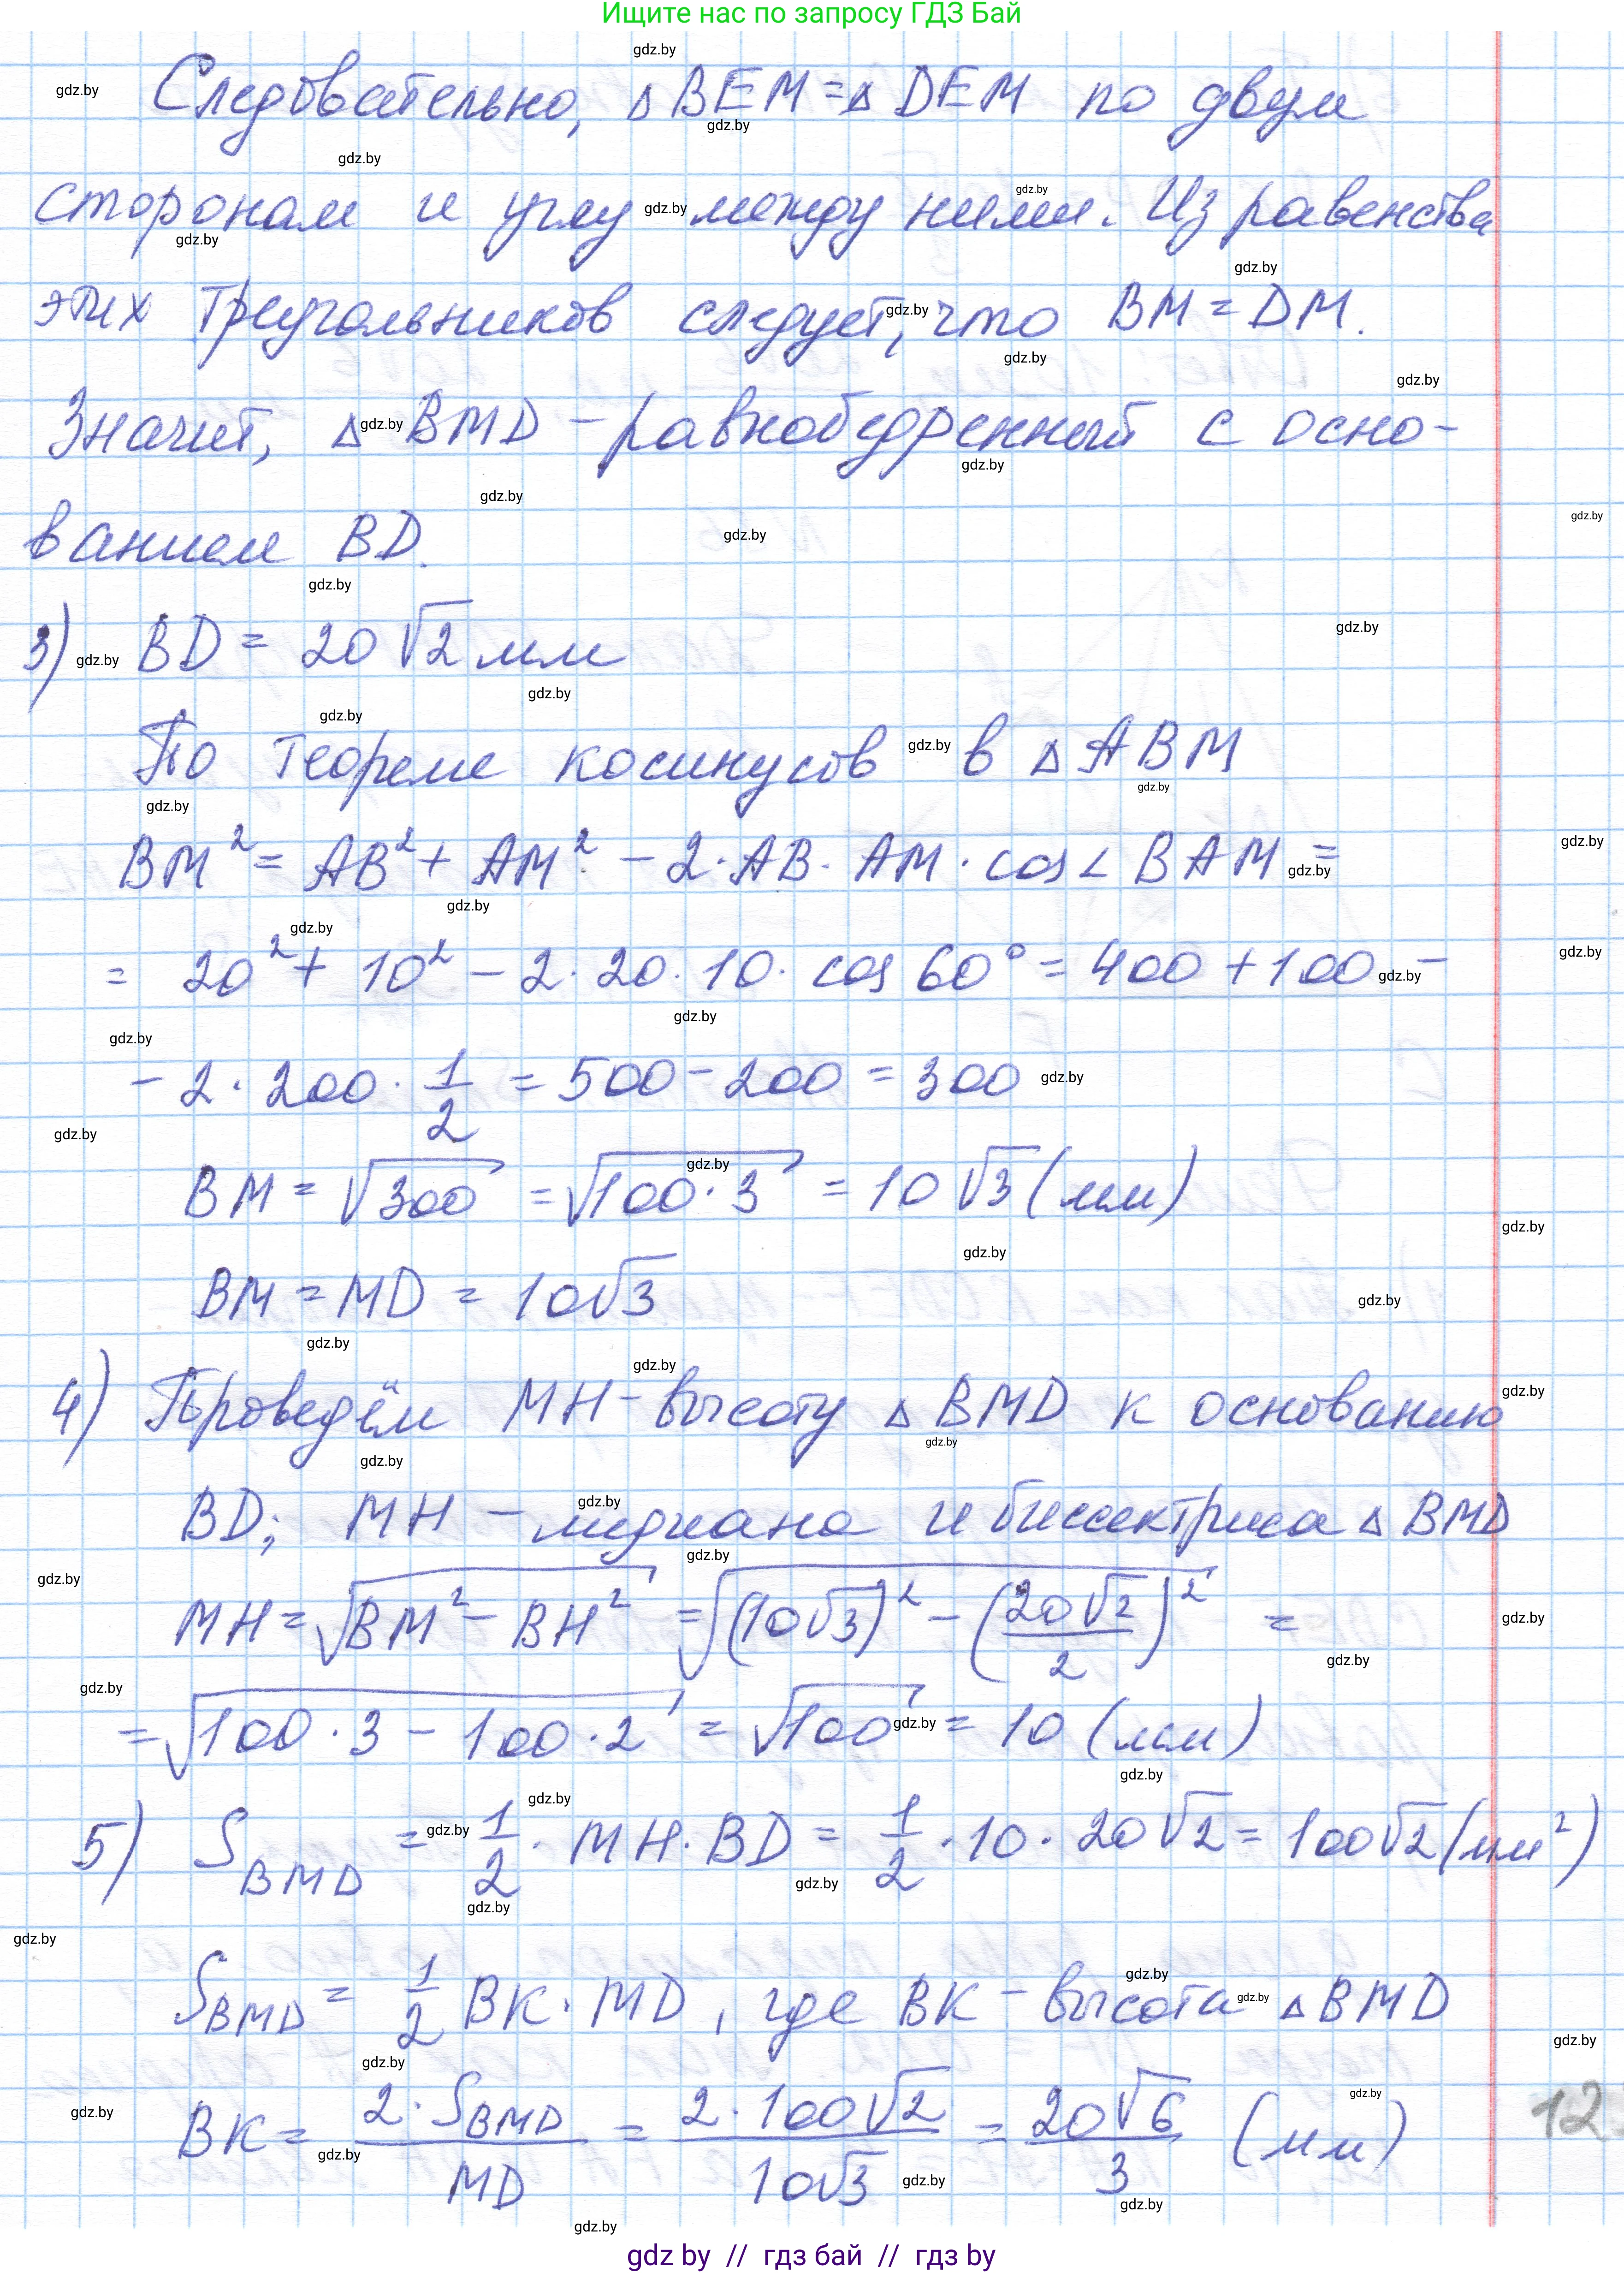 Ищите нас по запросу ГДЗ Бай
Следовательно, △BEM=△DEM по двум
сторонам и углу между ними. Из равенства
этих треугольников следует, что BM=DM.
Значит, △BMD – равнобедренный с осно-
ванием BD.
3) BD = 20√2 мм
По теореме косинусов в △ABM
BM² = AB² + AM² – 2·AB·AM·cos∠BAM =
= 20² + 10² – 2·20·10·cos 60° = 400 + 100 –
– 2·200·1/2 = 500 – 200 = 300
BM = √300 = √100·3 = 10√3 (мм)
BM = MD = 10√3
4) Проведём MH – высоту △BMD к основанию
BD; MH – медиана и биссектриса △BMD
MH = √(BM² – BH²) = √((10√3)² – (20√2/2)²) =
= √(100·3 – 100·2) = √100 = 10 (мм)
5) S BMD = 1/2·MH·BD = 1/2·10·20√2 = 100√2 (мм²)
S BMD = 1/2 BK·MD, где BK – высота △BMD
BK = 2·S BMD / MD = 2·100√2 / 10√3 = 20√6 / 3 (мм)
12
gdz by // гдз бай // гдз by